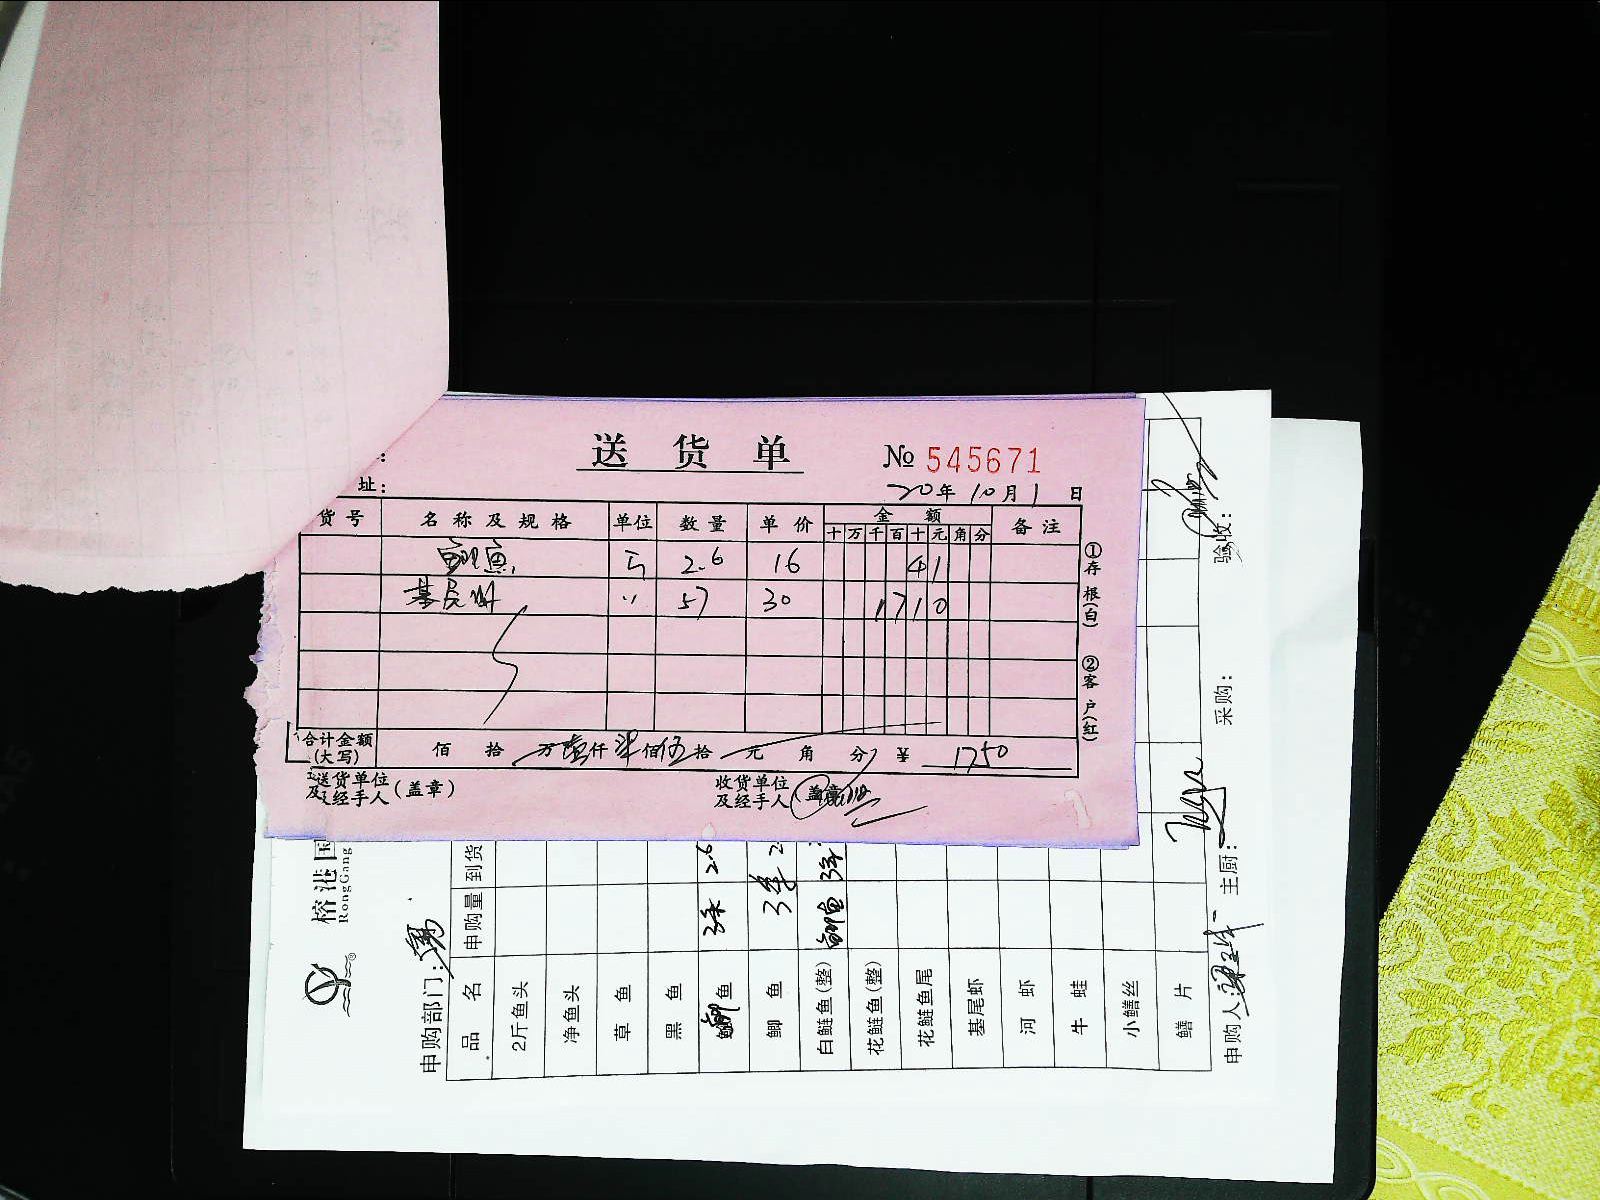 送货单 № 545671
址:
20年10月1日
货号 名称及规格 单位 数量 单价 金额 备注
十 万 千 百 十 元 角 分
鲫鱼 斤 2.6 16 41
基尾虾 〃 57 30 1710
合计金额
(大写) 佰 拾 万 壹仟 柒佰 伍拾 元 角 分 ¥ 1750
送货单位
及经手人 (盖章)
收货单位
及经手人 (盖章)
①存根(白)
②客户(红)
榕港国
RongGang
申购部门:
品名 申购量 到货
2斤鱼头
净鱼头
草鱼
黑鱼
鱼 3条 2.6
鲫鱼
白鲢鱼(整)
花鲢鱼(整)
花鲢鱼尾
基尾虾
河虾
牛蛙
小鳝丝
鳝片
申购人: 主厨: 采购: 验收: